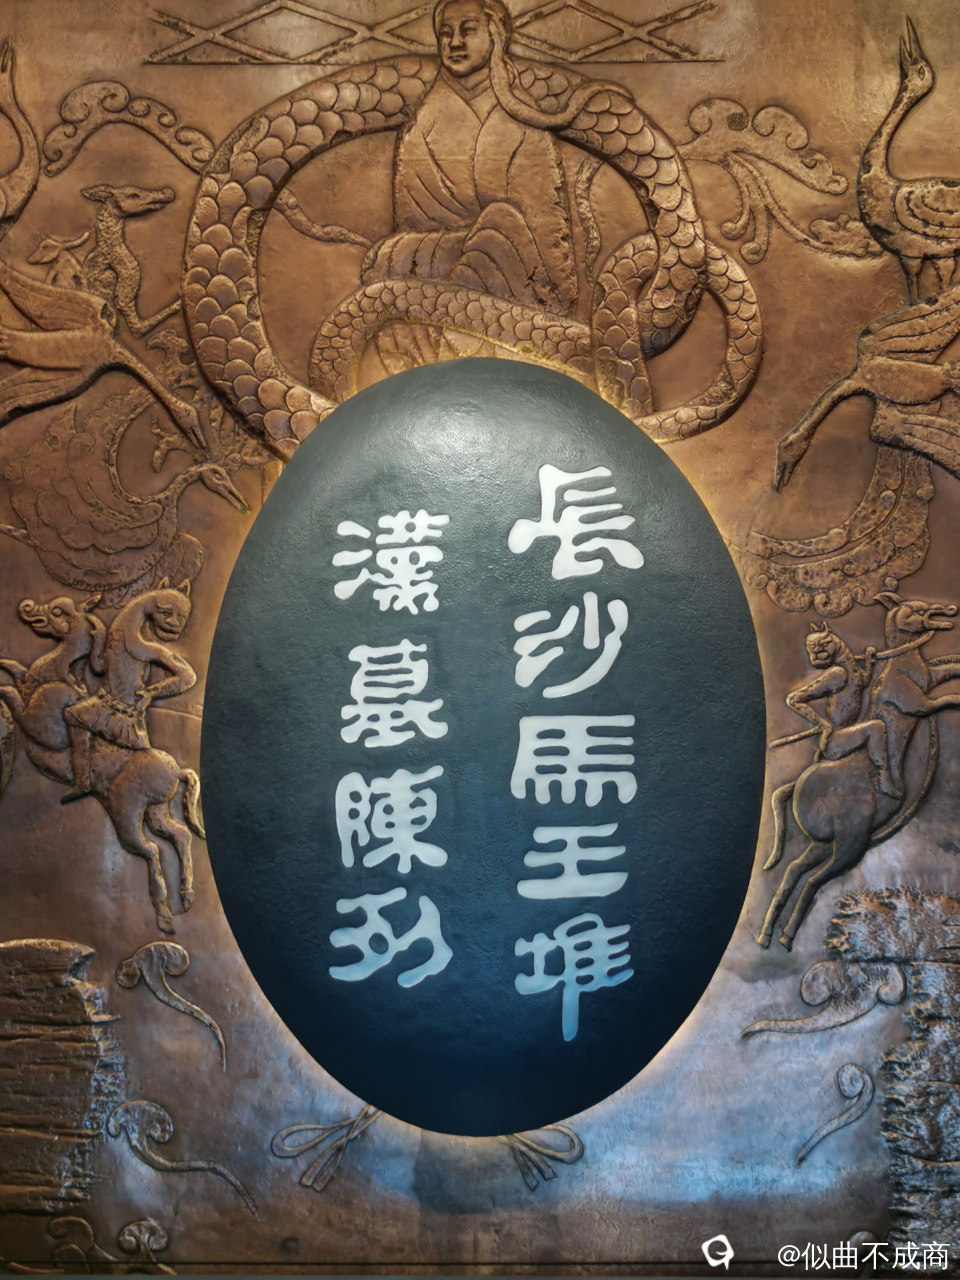 長沙馬王堆
漢墓陳列
@似曲不成商